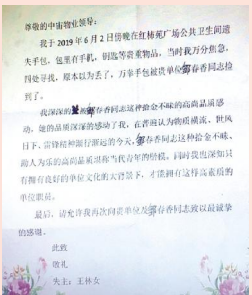 尊敬的中宙物业领导：
我于 2019 年 6 月 2 日傍晚在红柿苑广场公共卫生间遗
失手包，包里有手机，钥匙等贵重物品，当时我万分焦急，
四处寻找，原本以为丢了，万幸手包被贵单位郭春香同志捡
到了。
我深深的被郭春香同志这种拾金不昧的高尚品质感
动，她的品质深深的感动了我，在普遍认为物质横流、世风
日下、雷锋精神渐行渐远的今天，郭春香同志这种拾金不昧、
助人为乐的高尚品质堪称当代青年的楷模，同时我也深知只
有拥有良好的单位文化的大背景下，才能拥有这样高素质的
单位职员。
最后，请允许我再次向贵单位及郭春香同志致以最诚挚
的感谢。
此致
敬礼
失主：王林女